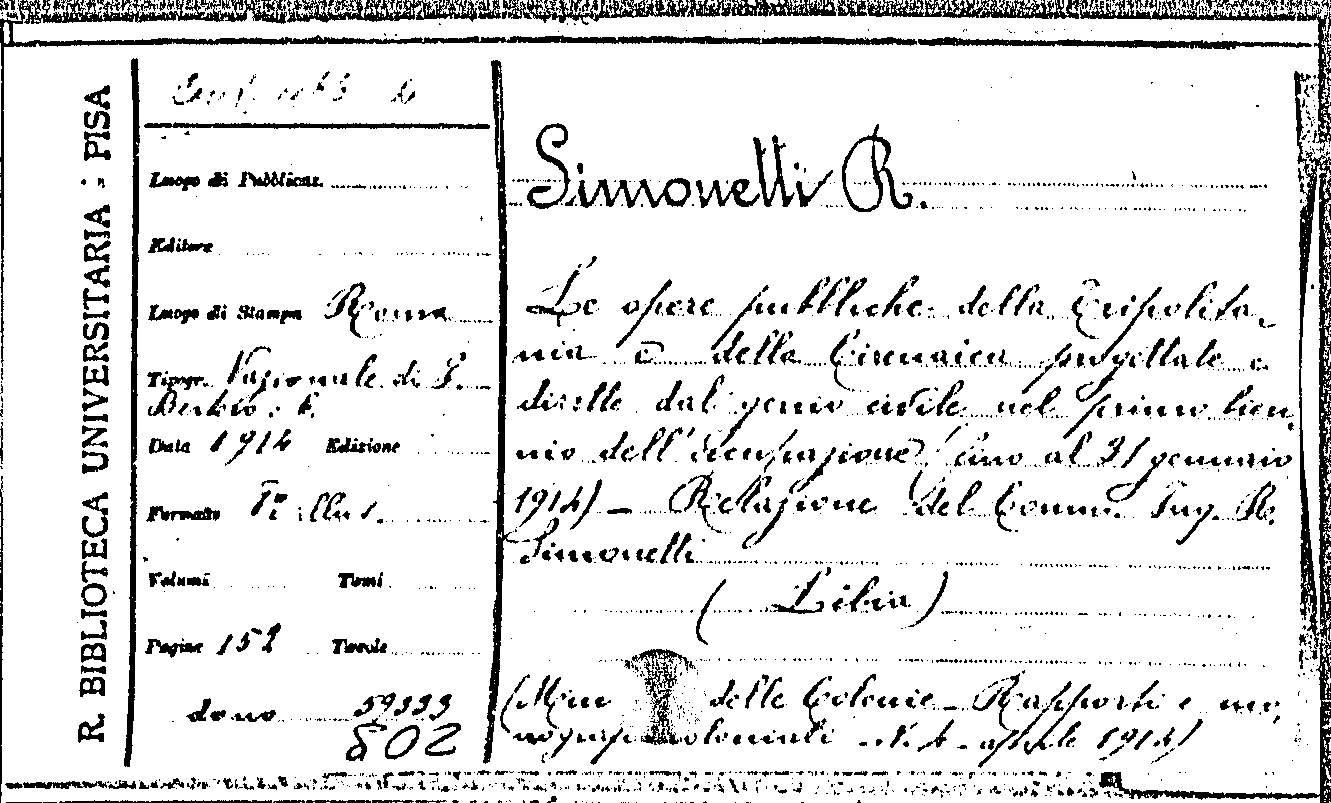 R. BIBLIOTECA UNIVERSITARIA - PISA
Luogo di Pubblicaz.
Editore
Luogo di Stampa Roma
Tipogr. Nazionale di G.
Bertero e C.
Data 1914 Edizione
Formato illus.
Volumi Tomi
Pagine 152 Tavole
dono 59333
802
Simonetti R.
Le opere pubbliche della Tripolita-
nia e della Cirenaica progettate e
dirette dal genio civile nel primo bien-
nio dell'occupazione (fino al 31 gennaio
1914) - Relazione del Comm. Ing. R.
Simonetti
(Libia)
(Min delle Colonie - Rapporti e mo-
nograf coloniali - N. 4 - aprile 1914)